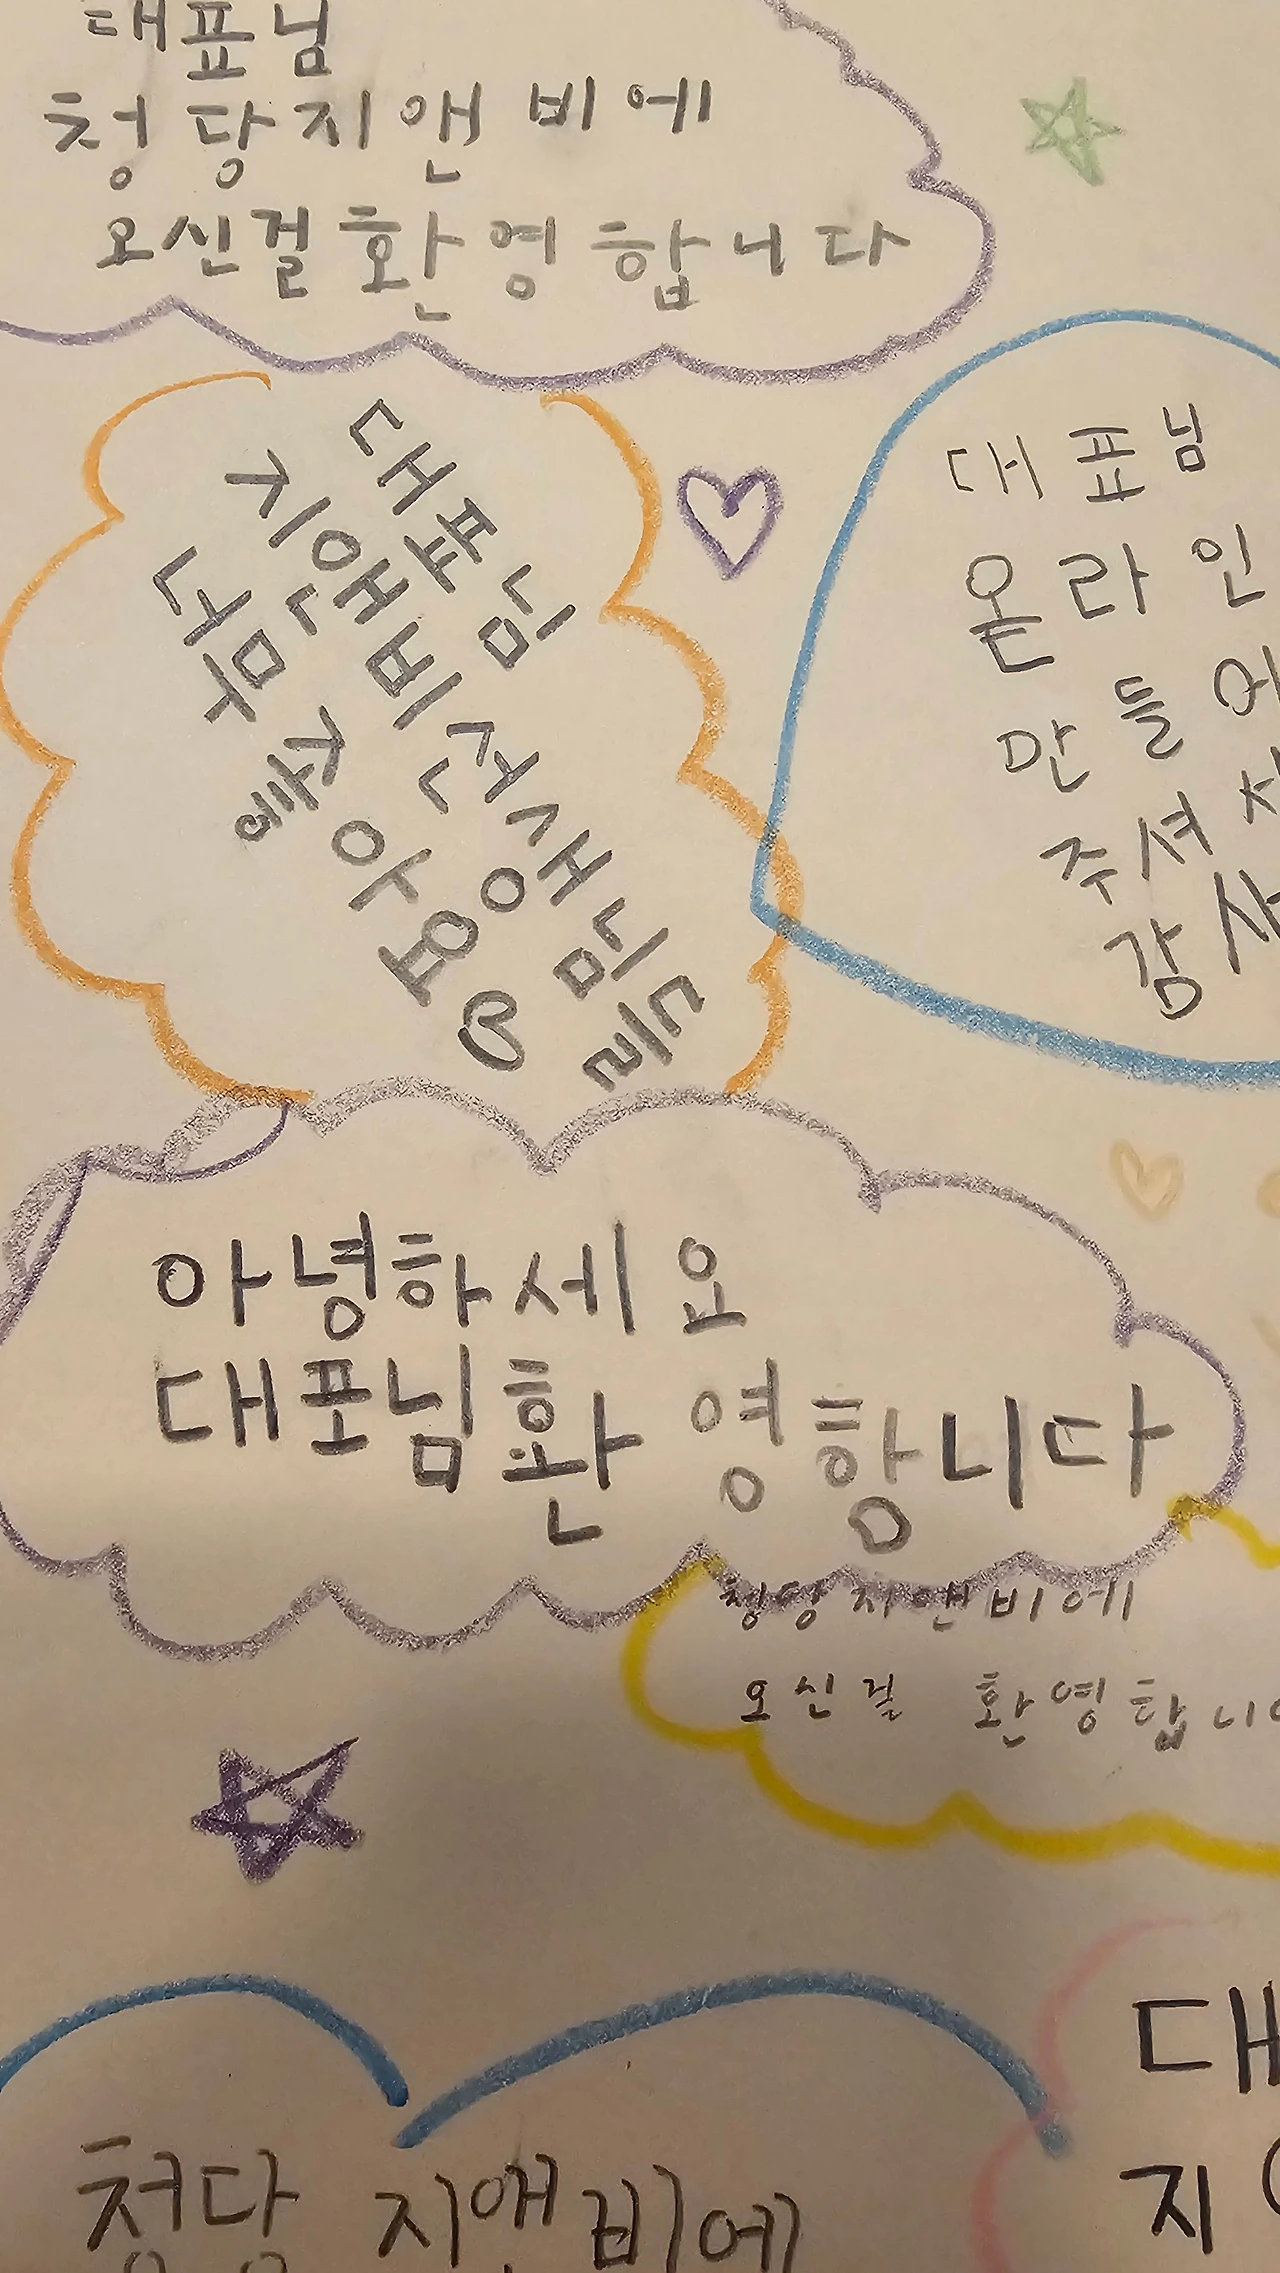 대표님
청당지앤비에
오신걸환영합니다
대표님
지앤비선생님들
너무 재미
있어요
대표님
온라인
만들어
주셔서
감사
안녕하세요
대표님환영합니다
청당지앤비에
오신걸 환영합니
청당 지앤비에
대
지